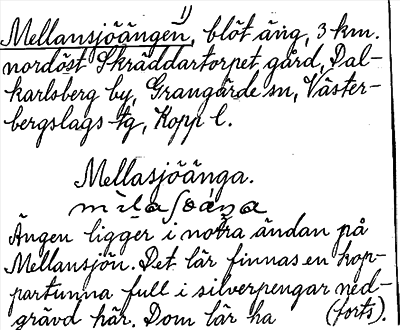 1)
Mellansjöängen, blöt äng, 3 km.
nordöst Skräddartorpet gård, Dal-
karlsberg by, Grangärde sn, Väster-
bergslags tg, Kopp l.
Mellasjöänga.
Ängen ligger i norra ändan på
Mellansjön. Det lär finnas en kop-
partunna full i silverpengar ned-
grävd här. Dom lär ha (forts).